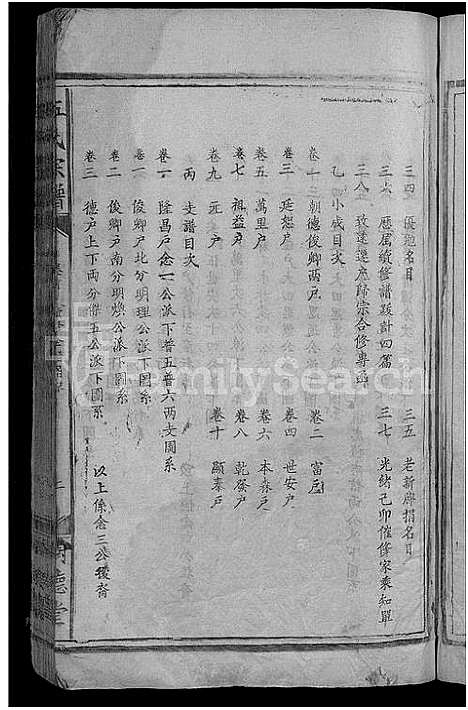 三四 優免名目 三五 老新廨捐名目
三六 歷屆續修譜跋計四篇 三七 光緒己卯催修家乘知單
三八 致達邊應歸宗合修專函
乙 四小成目次
卷一 十三朝德俊卿兩戶 卷二 富戶
卷三 廷恕户 卷四 世安户
卷五 萬里户 卷六 本森户
卷七 祖益户 卷八 乾發户
卷九 元户 卷十 顯秦户
丙 支譜目次
卷一 隆昌户念一公派下普五普六兩支圖系
卷一 俊卿户北分明理公派下圖系
卷二 俊卿户南分明煥公派下圖系
卷三 德户上下兩分傑五公派下圖系 以上係念三公後裔
氏宗譜
德堂
FamilySearch